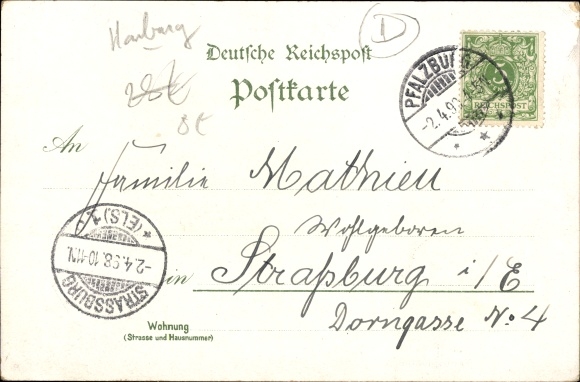 Harburg
D
Deutsche Reichspost
Postkarte
8€
PFALZBURG
-2.4.98
5
REICHSPOST
An Familie Mathieu
Wohlgeboren
in Straßburg i/E
Dorngasse No 4
STRASSBURG
-2.4.98.10-11N.
* (ELS) 1.g
Wohnung
(Strasse und Hausnummer)